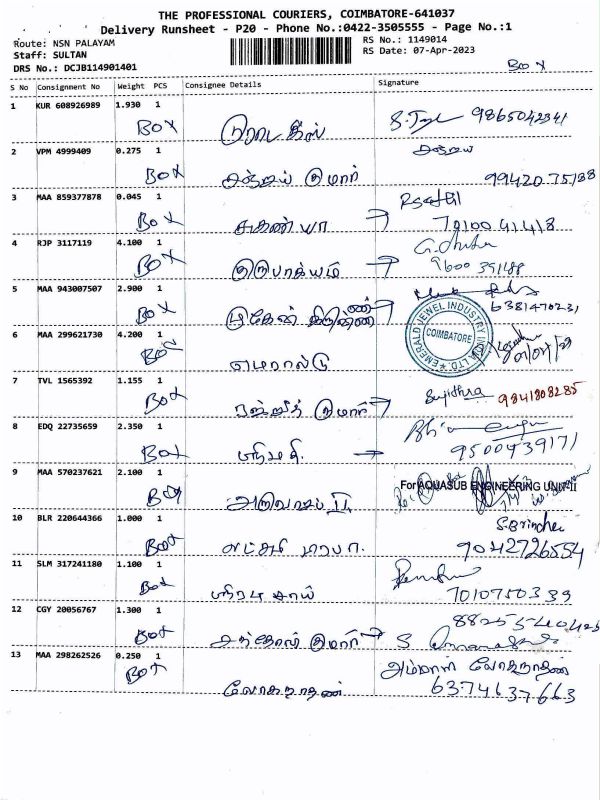 THE PROFESSIONAL COURIERS, COIMBATORE-641037
Delivery Runsheet - P20 - Phone No.:0422-3505555 - Page No.:1
Route: NSN PALAYAM RS No.: 1149014
Staff: SULTAN RS Date: 07-Apr-2023
DRS No.: DCJB114901401
BOX
S No Consignment No Weight PCS Consignee Details Signature
1 KUR 608926989 1.930 1
BOX 9865042341
2 VPM 4999409 0.275 1
BOX சஞ்சய் குமார் 9942075188
3 MAA 859377878 0.045 1
BOX சுகண்யா 7010041418
4 RJP 3117119 4.100 1
BOX 9600391188
5 MAA 943007507 2.900 1
BOX 6381470231
6 MAA 299621730 4.200 1
BOX எமரால்டு
EMERALD JEWEL INDUSTRY INDIA LTD.
COIMBATORE
7 TVL 1565392 1.155 1
BOX ரஞ்சித் குமார் Sujithra 9841808285
8 EDQ 22735659 2.350 1
BOX 9500439171
9 MAA 570237621 2.100 1
BOX For AQUASUB ENGINEERING UNIT-II
10 BLR 220644366 1.000 1
BOX 9042726554
11 SLM 317241180 1.100 1
BOX 7010750339
12 CGY 20056767 1.300 1
BOX சந்தோஷ் குமார் 8825540425
13 MAA 298262526 0.250 1
BOX லோகநாதன் 6374637663